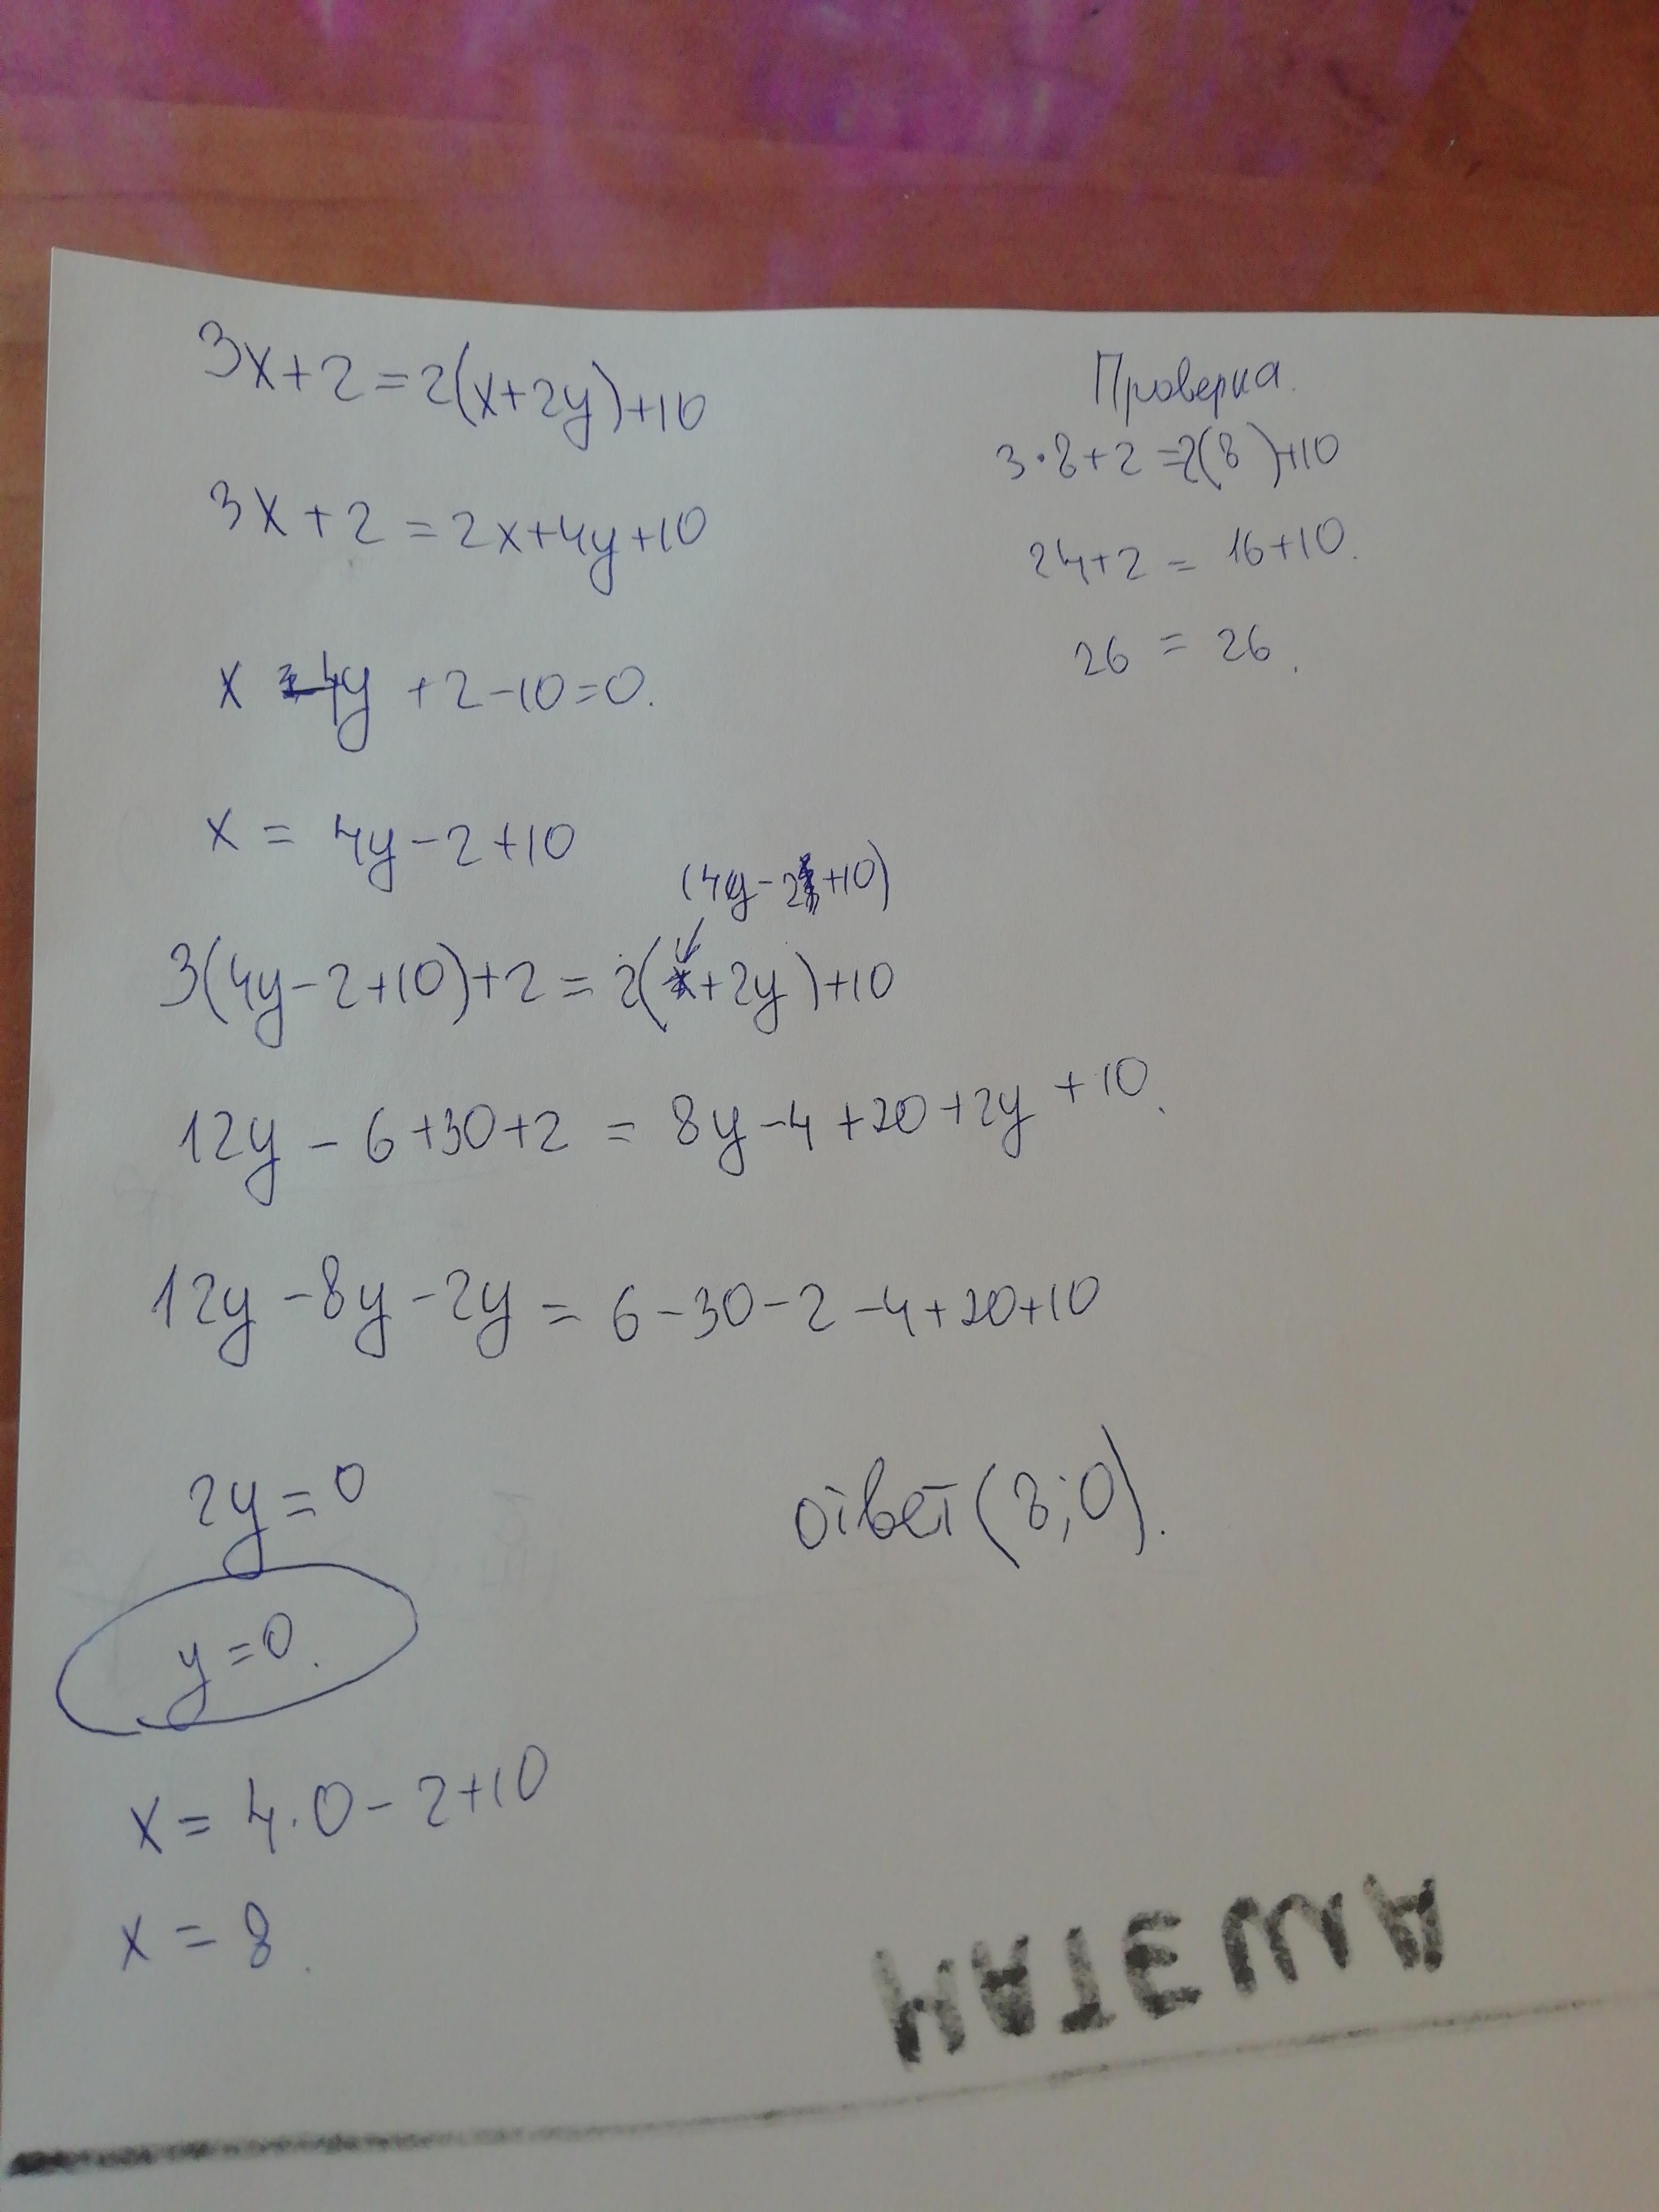 3x+2=2(x+2y)+10
3x+2=2x+4y+10
x -4y +2-10=0.
x = 4y-2+10
(4y-2+10)
3(4y-2+10)+2=2(x+2y)+10
12y-6+30+2=8y-4+20+2y+10.
12y-8y-2y=6-30-2-4+20+10
2y=0
y=0.
x=4·0-2+10
x=8.
Проверка.
3·8+2=2(8)+10
24+2=16+10.
26=26.
ответ(8;0).
НАТЕША